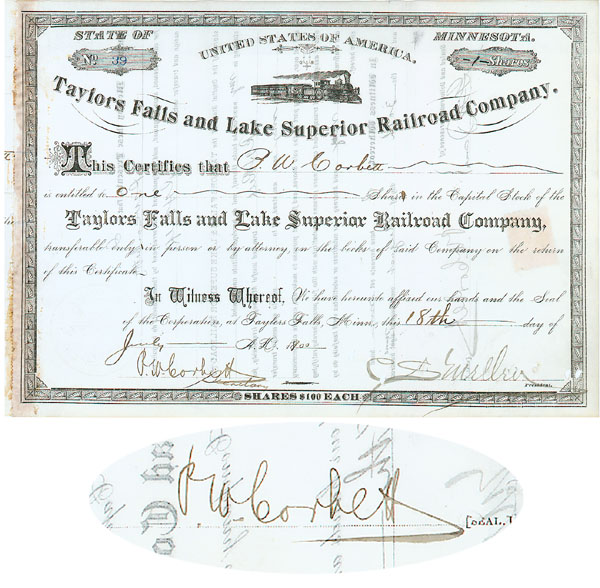 STATE OF
MINNESOTA.
UNITED STATES OF AMERICA.
No 39
-1- Shares
Taylors Falls and Lake Superior Railroad Company.
This Certifies that P W Corbett
is entitled to One Share in the Capitol Stock of the
Taylors Falls and Lake Superior Railroad Company,
transferable only in person or by attorney, in the books of said Company on the return
of this Certificate.
In Witness Whereof, We have hereunto affixed our hands and the Seal
of the Corporation, at Taylors Falls, Minn, this 18th day of
July A.D. 1900
P. W Corbett
President.
SHARES $100 EACH
P. W. Corbett
[SEAL.]